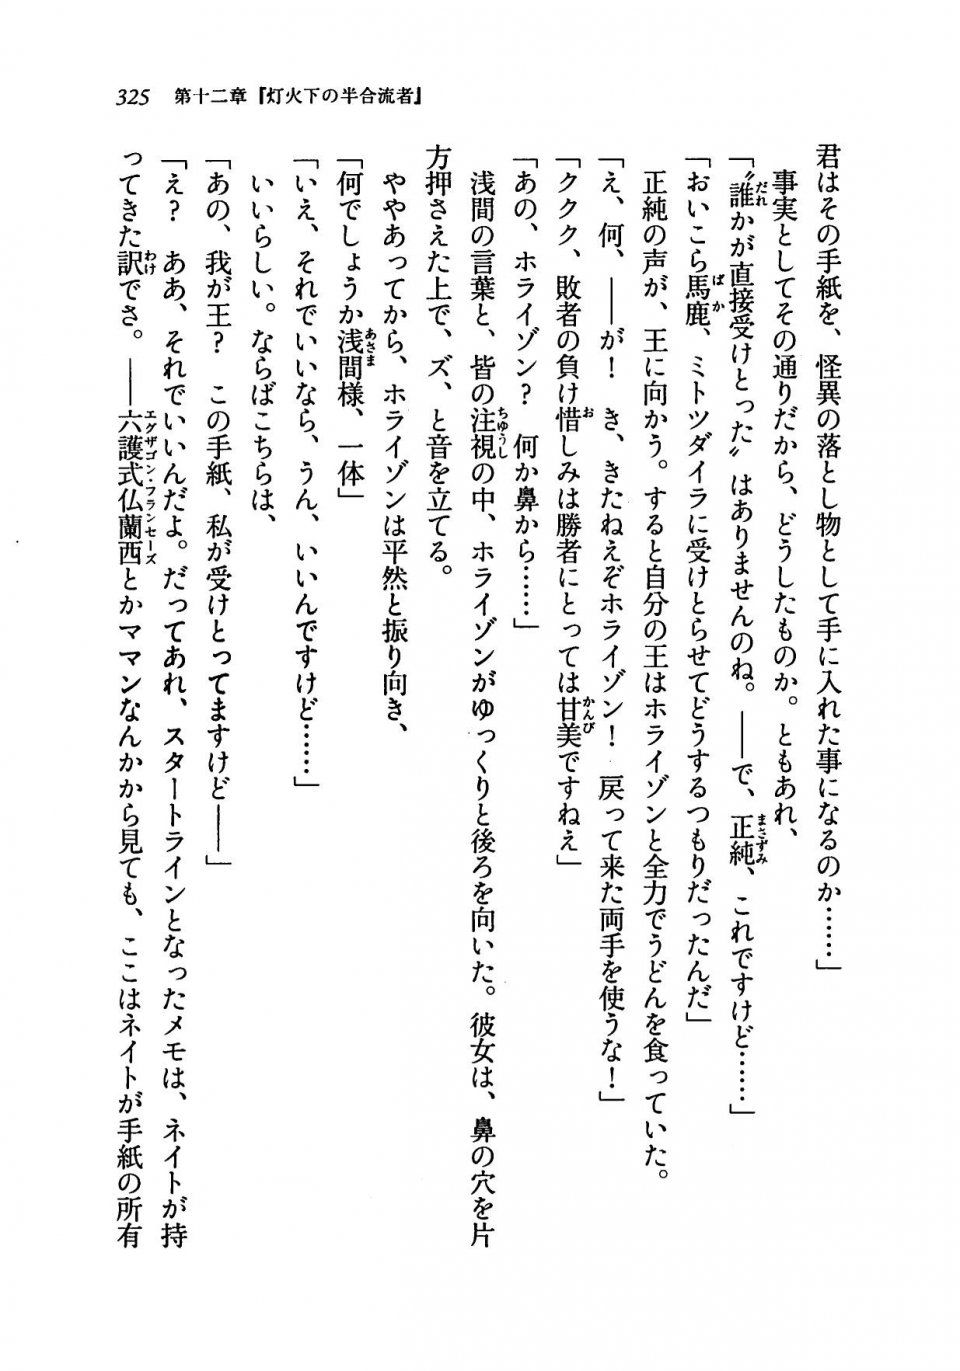 325　第十二章『灯火下の半合流者』
君はその手紙を、怪異の落とし物として手に入れた事になるのか……」
　事実としてその通りだから、どうしたものか。ともあれ、
「〝誰かが直接受けとった〟はありませんのね。――で、正純、これですけど……」
「おいこら馬鹿、ミトツダイラに受けとらせてどうするつもりだったんだ」
　正純の声が、王に向かう。すると自分の王はホライゾンと全力でうどんを食っていた。
「え、何、――が！　き、きたねえぞホライゾン！　戻って来た両手を使うな！」
「ククク、敗者の負け惜しみは勝者にとっては甘美ですねえ」
「あの、ホライゾン？　何か鼻から……」
　浅間の言葉と、皆の注視の中、ホライゾンがゆっくりと後ろを向いた。彼女は、鼻の穴を片
方押さえた上で、ズ、と音を立てる。
　ややあってから、ホライゾンは平然と振り向き、
「何でしょうか浅間様、一体」
「いえ、それでいいなら、うん、いいんですけど……」
　いいらしい。ならばこちらは、
「あの、我が王？　この手紙、私が受けとってますけど――」
「え？　ああ、それでいいんだよ。だってあれ、スタートラインとなったメモは、ネイトが持
ってきた訳でさ。――六護式仏蘭西とかママンなんかから見ても、ここはネイトが手紙の所有